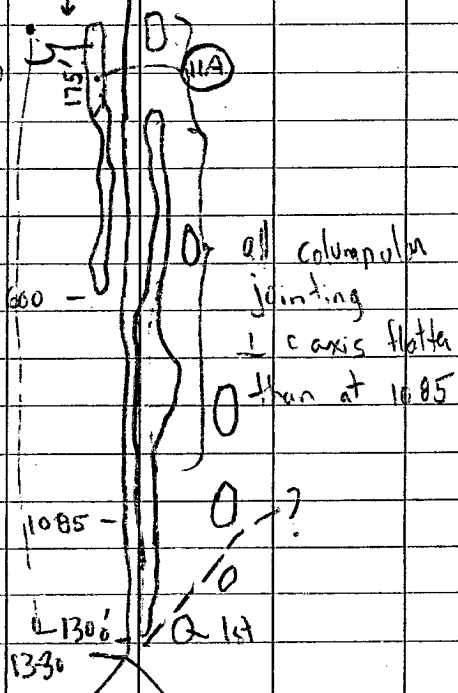 11A
175'
all columnular
jointing
600 -
⊥ c axis flatter
than at 1085
1085 -
?
1300'
Q 1st
1330